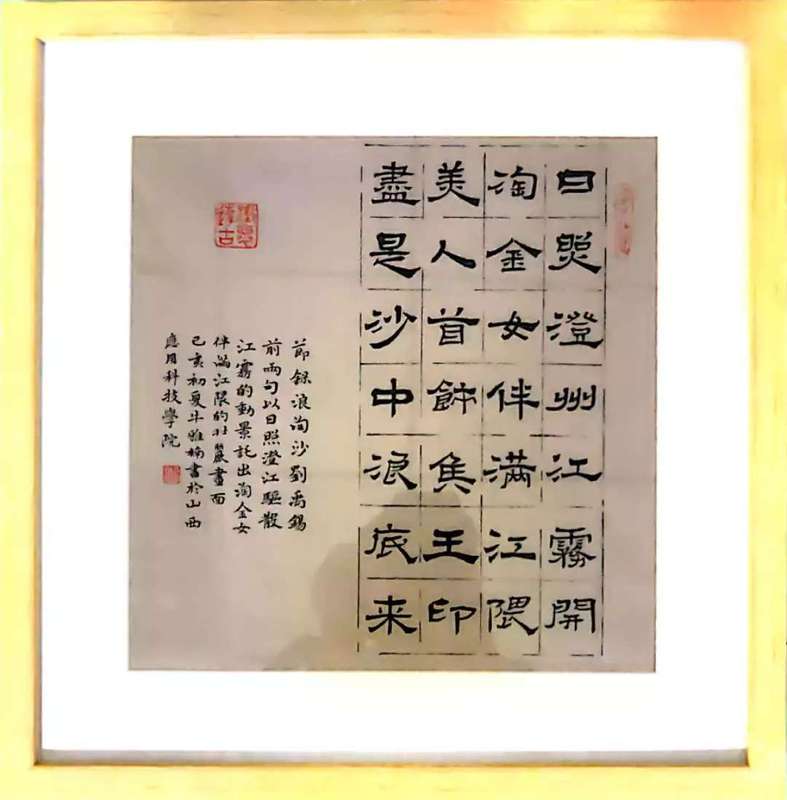 日照澄州江霧開
淘金女伴滿江隈
美人首飾侯王印
盡是沙中浪底来
節録浪淘沙劉禹錫
前兩句以日照澄江驅散
江霧的動景託出淘金女
伴滿江隈的壯麗畫面
己亥初夏牛雅楠書於山西
應用科技學院